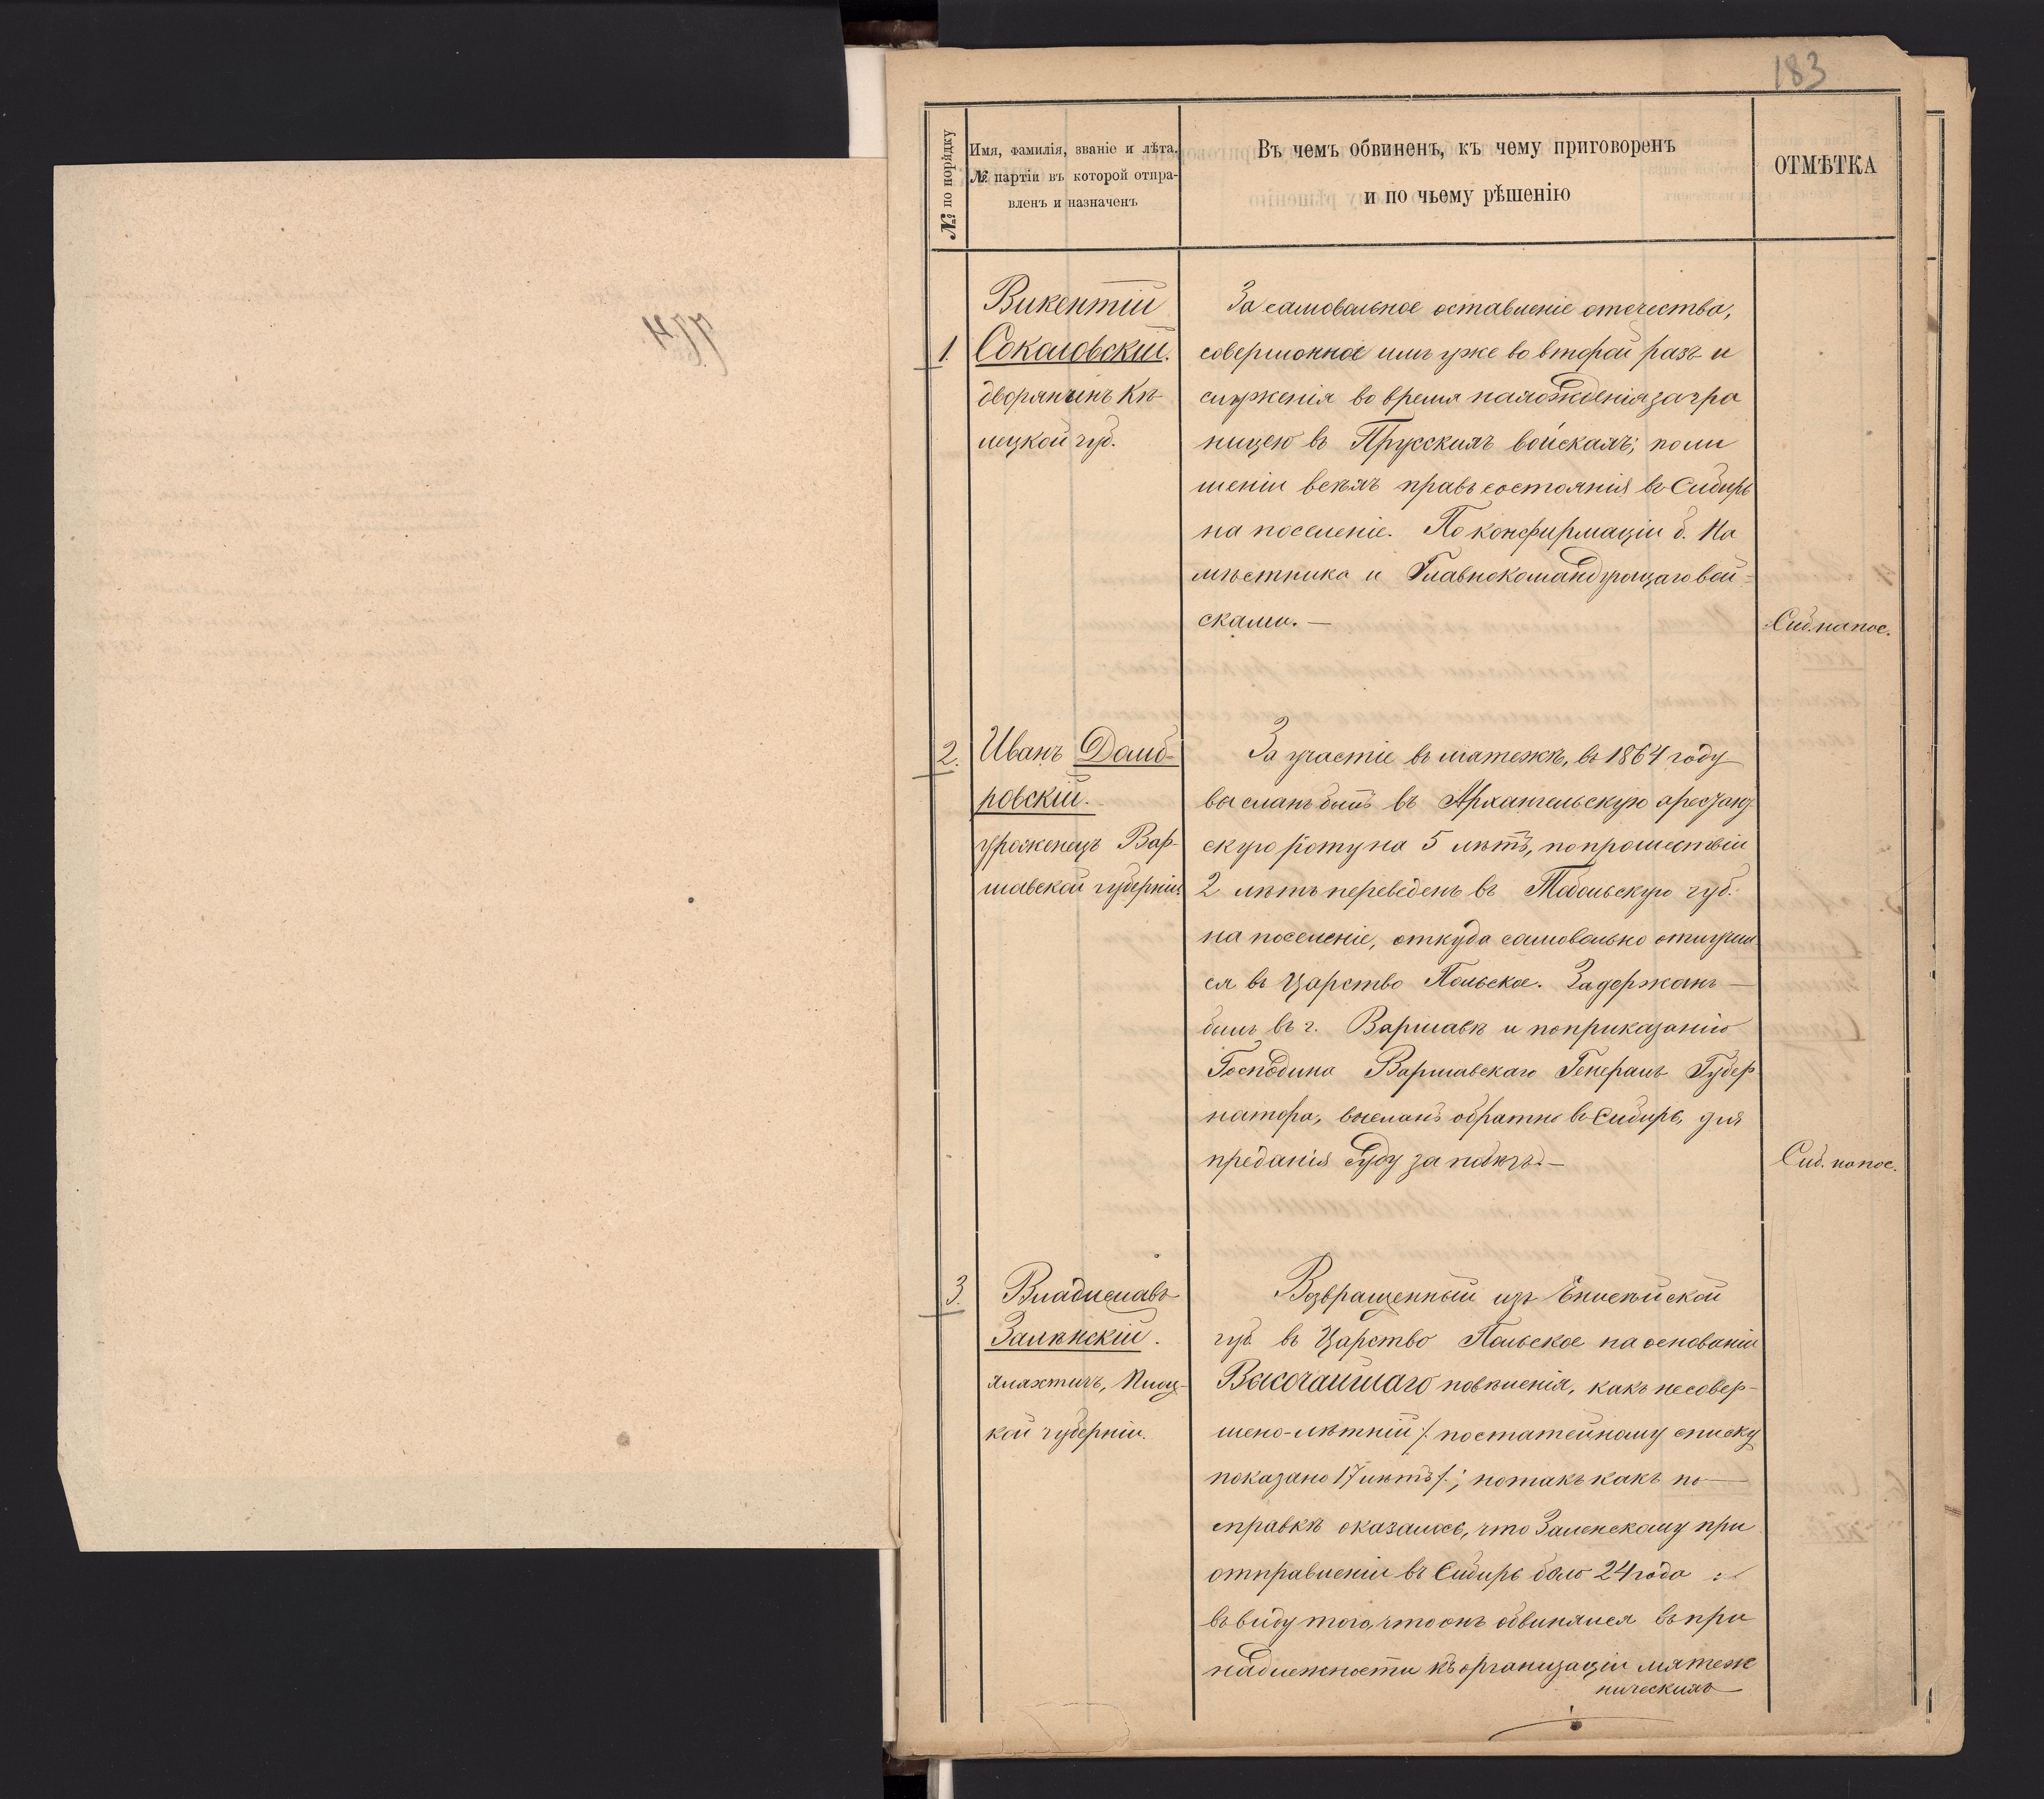 183
№№ по порядку
Имя, фамилія, званіе и лѣта.
№ партіи въ которой отпра-
вленъ и назначенъ
Въ чемъ обвиненъ, къ чему приговоренъ
и по чьему рѣшенію
ОТМѢТКА
1.
Викентій
Соколовскій.
дворянинъ Кѣ-
лецкой губ.
За самовольное оставленіе отечества,
совершонное имъ уже во второй разъ и
служенія во время нахожденія загра
ницею въ Прусскихъ войскахъ; по ли
шеніи всѣхъ правъ состоянія въ Сибирь
на поселеніе. По конфирмаціи б. На
мѣстника и Главнокомандующаго вой-
сками. —
Сиб. на пос.
2.
Иванъ Домб-
ровскій.
уроженецъ Вар-
шавской губерніи.
За участіе въ мятежѣ, въ 1864 году
высланъ былъ въ Архангельскую арестант
скую роту на 5 лѣтъ, по прошествіи
2 лѣтъ переведенъ въ Тобольскую губ.
на поселеніе, откуда самовольно отлучил
ся въ Царство Польское. Задержанъ —
былъ въ г. Варшавѣ и по приказанію
Господина Варшавскаго Генералъ Губер
натора, высланъ обратно въ Сибирь, для
преданія суду за побѣгъ. —
Сиб. на пос.
3.
Владиславъ
Залѣнскій.
шляхтичъ, Плоц-
кой губерніи.
Возвращенный изъ Енисейской
губ. въ Царство Польское на основаніи
Высочайшаго повѣленія, какъ несовер-
шено-лѣтній /. по статейному списку
показано 17 лѣтъ /.; но такъ какъ по —
справкѣ оказалось, что Заленскому при
отправленіи въ Сибирь было 24 года :
въ виду того, что онъ обвинялся въ при
надлежности къ организаціи мятеж
ническихъ